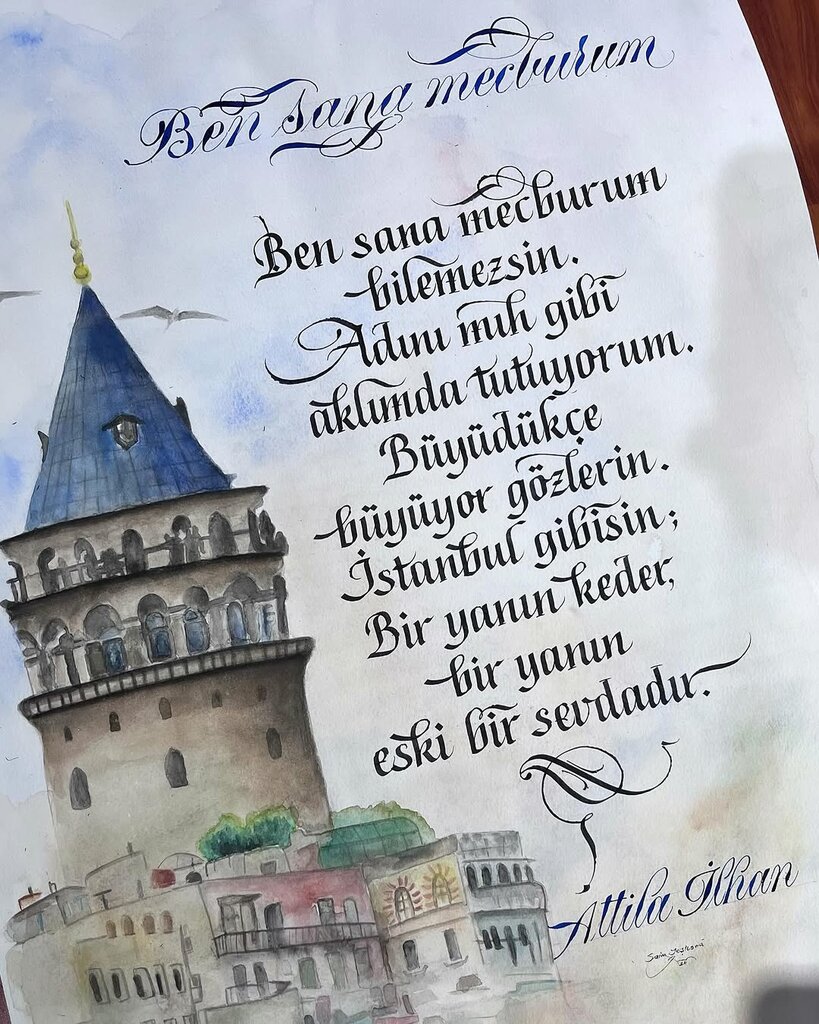 Ben sana mecburum
Ben sana mecburum
bilemezsin.
Adını mıh gibi
aklımda tutuyorum.
Büyüdükçe
büyüyor gözlerin.
İstanbul gibisin;
Bir yanın keder,
bir yanın
eski bir sevdadır.
Attila İlhan